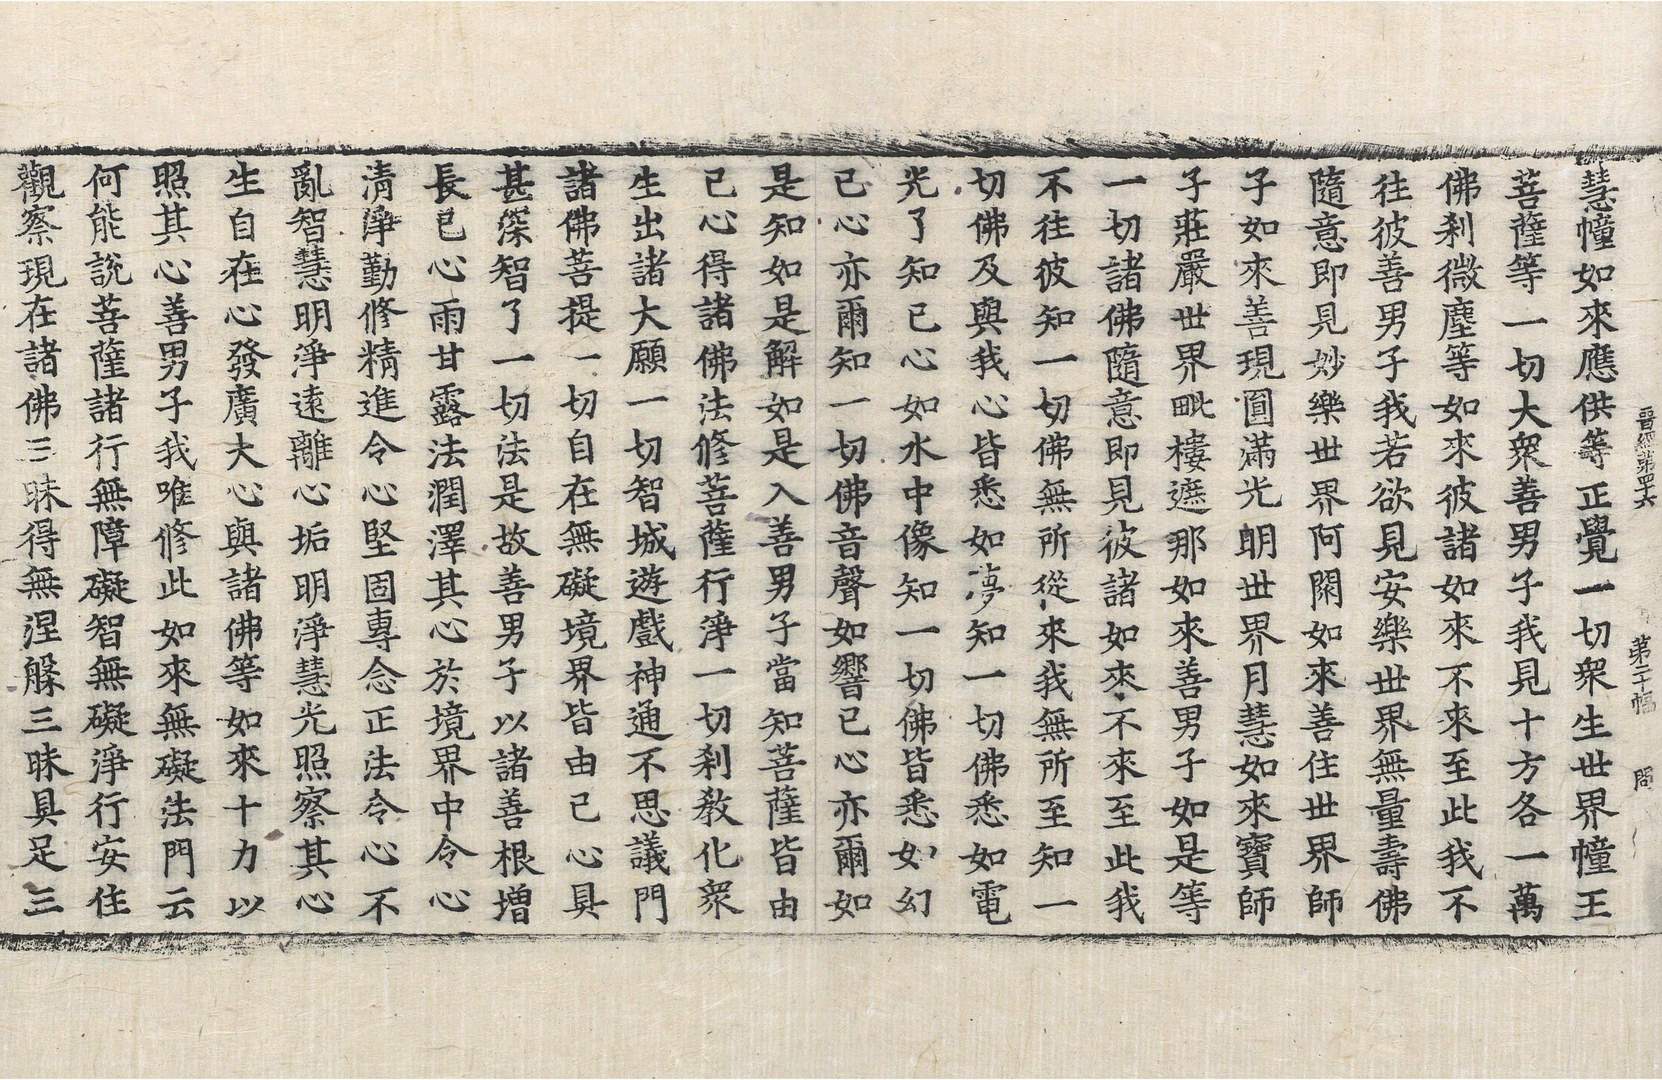 晋經第四六　第二十幅　問
慧幢如來應供等正覺一切衆生世界幢王
菩薩等一切大衆善男子我見十方各一萬
佛刹微塵等如來彼諸如來不來至此我不
往彼善男子我若欲見安樂世界無量壽佛
隨意即見妙樂世界阿閦如來善住世界師
子如來善現圓滿光明世界月慧如來寶師
子莊嚴世界毗樓遮那如來善男子如是等
一切諸佛隨意即見彼諸如來不來至此我
不往彼知一切佛無所從來我無所至知一
切佛及與我心皆悉如夢知一切佛悉如電
光了知己心如水中像知一切佛皆悉如幻
己心亦爾知一切佛音聲如響己心亦爾如
是知如是解如是入善男子當知菩薩皆由
己心得諸佛法修菩薩行淨一切刹教化衆
生出諸大願一切智城遊戲神通不思議門
諸佛菩提一切自在無礙境界皆由己心具
甚深智了一切法是故善男子以諸善根增
長己心雨甘露法潤澤其心於境界中令心
清淨勤修精進令心堅固專念正法令心不
亂智慧明淨遠離心垢明淨慧光照察其心
生自在心發廣大心與諸佛等如來十力以
照其心善男子我唯修此如來無礙法門云
何能說菩薩諸行無障礙智無礙淨行安住
觀察現在諸佛三昧得無涅槃三昧具足三